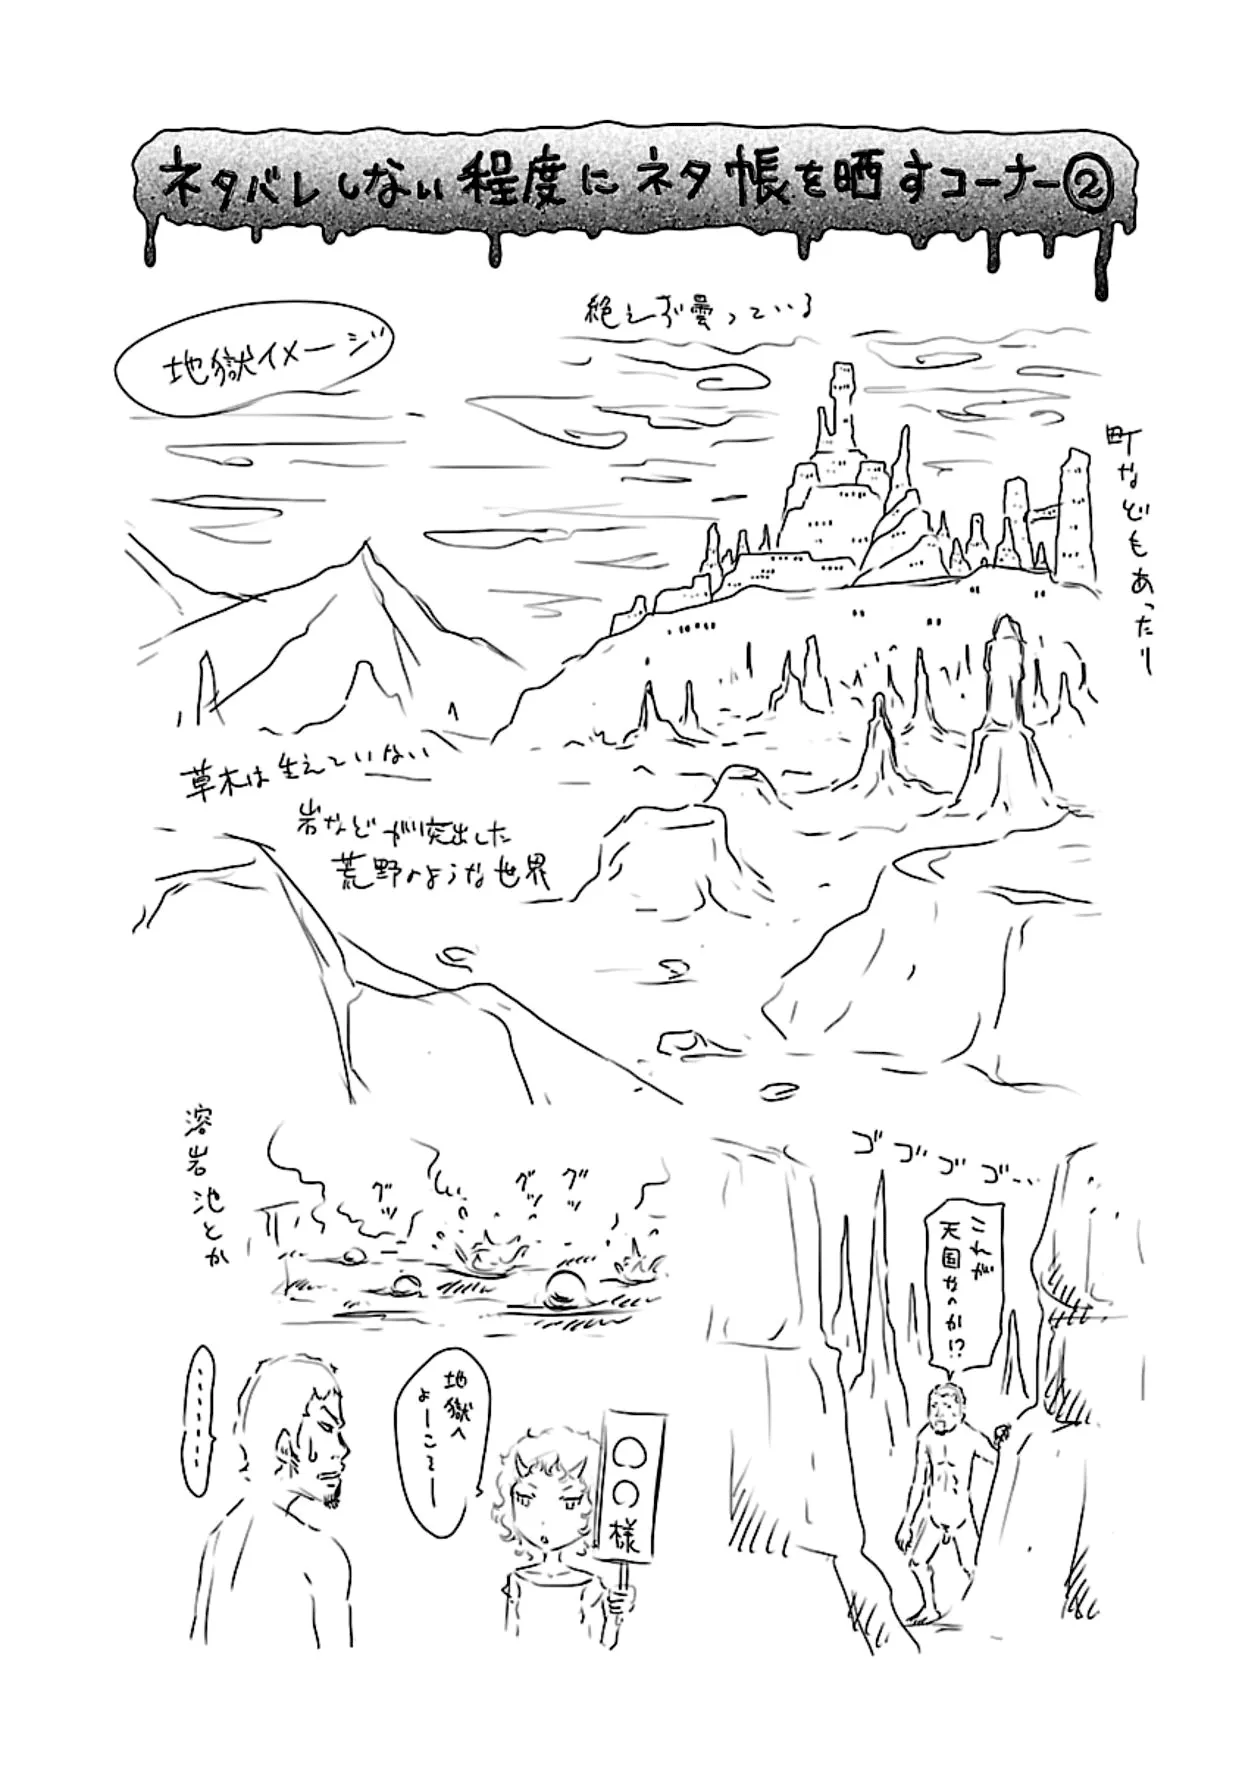 ネタバレしない程度にネタ帳を晒すコーナー②
地獄イメージ
絶えず曇っている
町などもあったり
草木は生えていない
岩などが突出した
荒野のような世界
溶岩池とか
グッ
グッ
グッ
ゴゴゴゴ…
これが
天国なのか!?
………
地獄へ
よーこそー
○○様